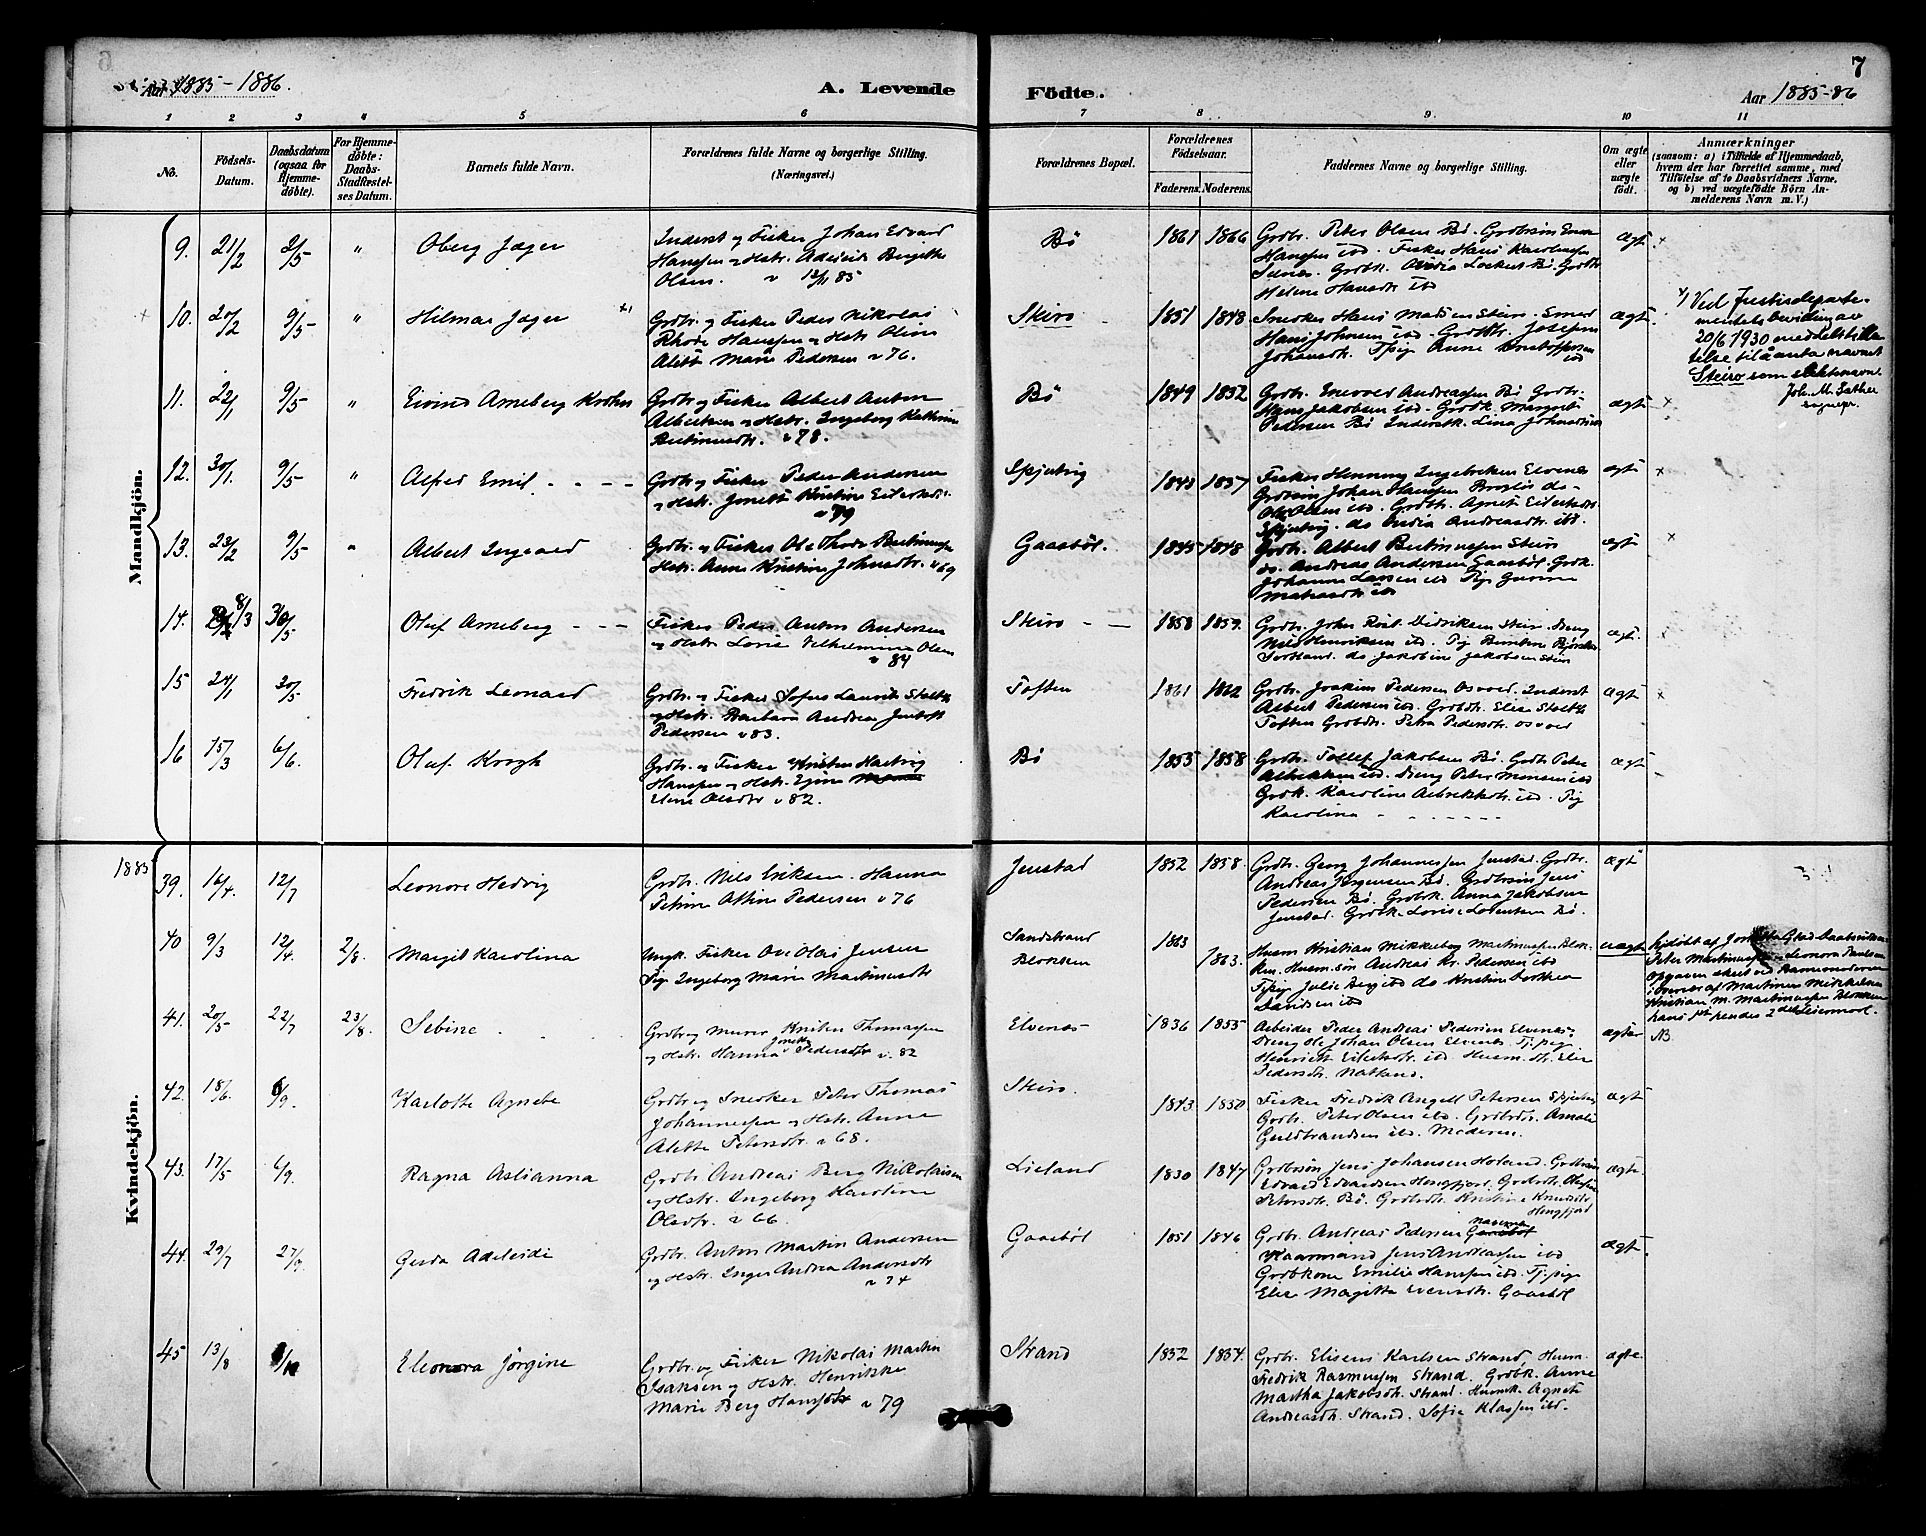 Aar 1885-1886.
A. Levende
Födte.
Aar 1885-86
7
1 2 3 4 5 6 7 8 9. 10 11
No.
Födsels-Datum.
Daabsdatum (ogsaa for Hjemmedöbte).
For Hjemmedöbte: Daabs-Stadfæstelses Datum.
Barnets fulde Navn.
Forældrenes fulde Navne og borgerlige Stilling. (Næringsvei.)
Forældrenes Bopæl.
Forældrenes Födselsaar.
Faderens. Moderens.
Faddernes Navne og borgerlige Stilling.
Om ægte eller uægte födt.
Anmærkninger
(saasom: a) i Tilfælde af Hjemmedaab, hvem der har forrettet samme, med Tilföielse af to Daabsvidners Navne, og b) ved uægtefödte Börn Anmelderens Navn m. V.)
Mandkjön.
9. 21/2 2/5 " Oberg Jæger
Inderst og Fisker Johan Edvard
Hanssen og Hstr. Adeleide Birgitte
Olsen. v 12/11 85
Bö 1861 1866
Grdbr. Peter Olsen Bö. Grdbrsön
Hanssen ibd. Fisker Hans
Helene Hansdtr. ibd
ægt
10. 20/2 9/5 " Hilmar Jæger
Grdbr. og Fisker Peder Nikolai
Rhode Hanssen og Hstr. Oline
Alette Marie Pedersen v 76.
Skiro 1851 1848
Snedker Hans Madsen Steiro.
Hans Johnsen ibd.
Johansdtr. Tjpig Anne
ægt.
Ved Justisdeparte-
mentets bevilling av
20/6 1930 meddelt tilla
telse til å anta navnet
Steiro som slektsnavn.
Joh. M. Sæther
sognepr.
11. 22/1 9/5 " Eivind Arneberg Krohn
Grdbr. og Fisker Albert Anton
Albertsen og Hstr. Ingeborg Kathrine
Bertinusdtr. v 78.
Bö 1849 1852
Grdbr. Enevold Andreassen Bö Grdbr.
Hans Jakobsen ibd. Grdbk. Margret
Pedersen Bö Inderstk. Lina
ægt
12. 30/1. 9/5 " Alfred Emil
Grdbr. og Fisker Peder Andersen
og Hstr. Jonette Kristine Eilertsdtr.
v 79
1843 1857
Fisker Henning Ingebretsen Elvenes
Grdbrsön Johan Hanssen
Olsen ibd. Grdbr. Agnete Eilertsdtr
do Andrea Andreasdtr ibd.
ægt
13. 23/2 9/5 " Albert Ingvard
Grdbr. og Fisker Ole Thode Bertinussen
Hstr. Anne Kristine Johnsdtr. v 69
Gaasböl. 1845 1848
Grdbr. Albert Bertinussen Steiro
do. Andreas Andersen Gaasböl. Grdk.
Johanne Larsen ibd Pige
ægt
14. 8/3 30/5 Oluf Arneberg
Fisker Peder Anton Andersen
og Hstr. Lovise Vilhelmine Olsen
v 84
Skiro 1858 1859.
Grdbr. Johan Didriksen Steiro. Dreng
Nils Henriksen ibd.
Sortland. do Jakobine Jakobsen Steiro
ægt.
15 24/1 30/5 Fredrik Leonard
Grdbr. og Fisker Sofus Laurits Stoltz
og Hstr. Barbara Andrea Jentoft
Pedersen v 83.
Toften 1861 1862
Grdbr. Joakim Pedersen Osvold. Inderst
Albert Pedersen ibd. Grdbdtr. Elise Stoltz
Toften Grdbdtr. Petra Pedersdtr. Osvold
ægt
16 15/3 6/6. Oluf Krogh
Grdbr. og Fisker Kristen Hartvig
Hanssen og Hstr.
Eline Olsdtr v 82.
Bö 1855 1858
Grdbr. Tollef Jakobsen Bö. Grdbr Peter
Albriktsen ibd. Dreng Peter Monsen ibd
Grdk. Karoline Albriktsdtr. ibd. Pig
Karolina
ægt
Kvindekjön.
1885
39. 16/4. 12/7 Leonore Hedvig
Grdbr. Nils Eriksen. Hanna
Petrine Pedersen v 76
Jenstad 1852 1858.
Grdbr. Georg Johannessen Jenstad. Grdbr.
Andreas Jörgensen Bö. Grdbrsön Jens
Pedersen Bö. Grdbrk. Anna Jakobsen
Jenstad. Grdbk. Lovise Lorentsen Bö.
ægt
40 9/3 12/4. 2/8. Margit Karolina
Ungk. Fisker Ove Olai Jensen
Pig. Ingeborg Marie Martinusdtr
Sandstrand
Blokken
1863
1863.
Husm Kristian Mikkeborg Martinussen Blok-
ken. Husm. sön Andreas Kr. Pedersen ibd
Tjpig Julie Berg ibd do Kristine Dorthea
Davidsen ibd
uægte
hjdöbt af
Peter Martinussen Leonora Paulsen
Opgaven skeet ved Barnemoderen
i overvær af Martinus Mikkelsen
Kristian M. Martinussen Blokken
hans 1ste hendes 2det Leiermaal.
41. 20/5 22/7 23/8. Sebine
Grdbr og Murer Kristen Thomassen
og Hstr. Hanna Jonette Pedersdtr v. 82
Elvenes 1836 1855
Arbeider Peder Andreas Pedersen Elvenes.
Dreng Ole Johan Olsen Elvenes Tj.pige
Henriette Eilertsdtr. ibd Husm. dtr. Elise
Pedersdtr. Natland.
ægte NB.
42. 18/6. 6/9. Karlotte Agnete
Grdbr og Snedker Peter Thomas
Johannessen og Hstr. Anna
Alette Petersdtr. v 68.
Skiro. 1843 1850
Fisker Fredrik Angell Petersen
Grdbr. Peter Olsen ibd. Grdbrdtr. Amalie
Guldbrandsen ibd. Moderen.
ægt
43. 17/5 6/9. Ragna Aslianna
Grdbr. Andreas Berg Nikolaisen
og Hstr. Ingeborg Karoline
Olsdtr. v 66.
Lieland 1830 1847
Grdbrsön Jens Johansen Holand. Grdbrsön
Edvard Edvardsen Hengfjord. Grdbrdtr
Petersdtr. Bö. Grdbrdtr. Kristine Knudsdtr
Hengfjord
ægte.
44. 29/7 27/9. Gerda Adeleide
Grdbr. Anton Martin Andersen
og Hstr. Inger Andrea Andersdtr
v 74
Gaasböl 1851 1846
Grdbr. Andreas Pedersen
Kaarmand Jens Andreassen ibd
Grdbkone Emilie Hanssen ibd. Tj.pige
Elise Magitta Gaasböl
ægt.
45 13/8 /10 Eleonora Jörgine
Grdbr. og Fisker Nikolai Martin
Isaksen og Hstr. Henrikke
Marie Berg Hansdtr v 79
Strand 1852 1854.
Grdbr. Eliseus Karlsen Strand, Husm.
Fredrik Rasmussen Strand. Grdbk. Anne
Martha Jakobsdtr. Strand. Husmk. Agnete
Andreasdtr. Strand. Sofie Klassen ibd.
ægte.